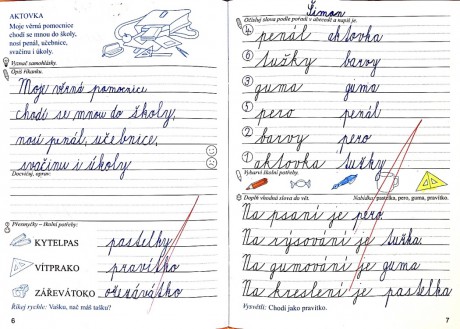 AKTOVKA
Moje věrná pomocnice
chodí se mnou do školy,
nosí penál, učebnice,
svačinu i úkoly.
Vyznač samohlásky.
Opiš říkanku.
Moje věrná pomocnice
chodí se mnou do školy,
nosí penál, učebnice,
svačinu i úkoly
Docvičuj, oprav:
Přesmyčky – školní potřeby:
KYTELPAS pastelky
VÍTPRAKO pravítko
ZÁŘEVÁTOKO ořezávátko
Říkej rychle: Vašku, nač máš tašku?
6
Šimon
Očísluj slova podle pořadí v abecedě a napiš je.
4 penál aktovka
6 tužky barvy
3 guma guma
5 pero penál
2 barvy pero
1 aktovka tužky
Vybarvi školní potřeby.
Doplň vhodná slova do vět. Nabídka: pastelka, pero, guma, pravítko.
Na psaní je pero.
Na rýsování je tužka.
Na gumování je guma.
Na kreslení je pastelka
Vysvětli: Chodí jako pravítko.
7